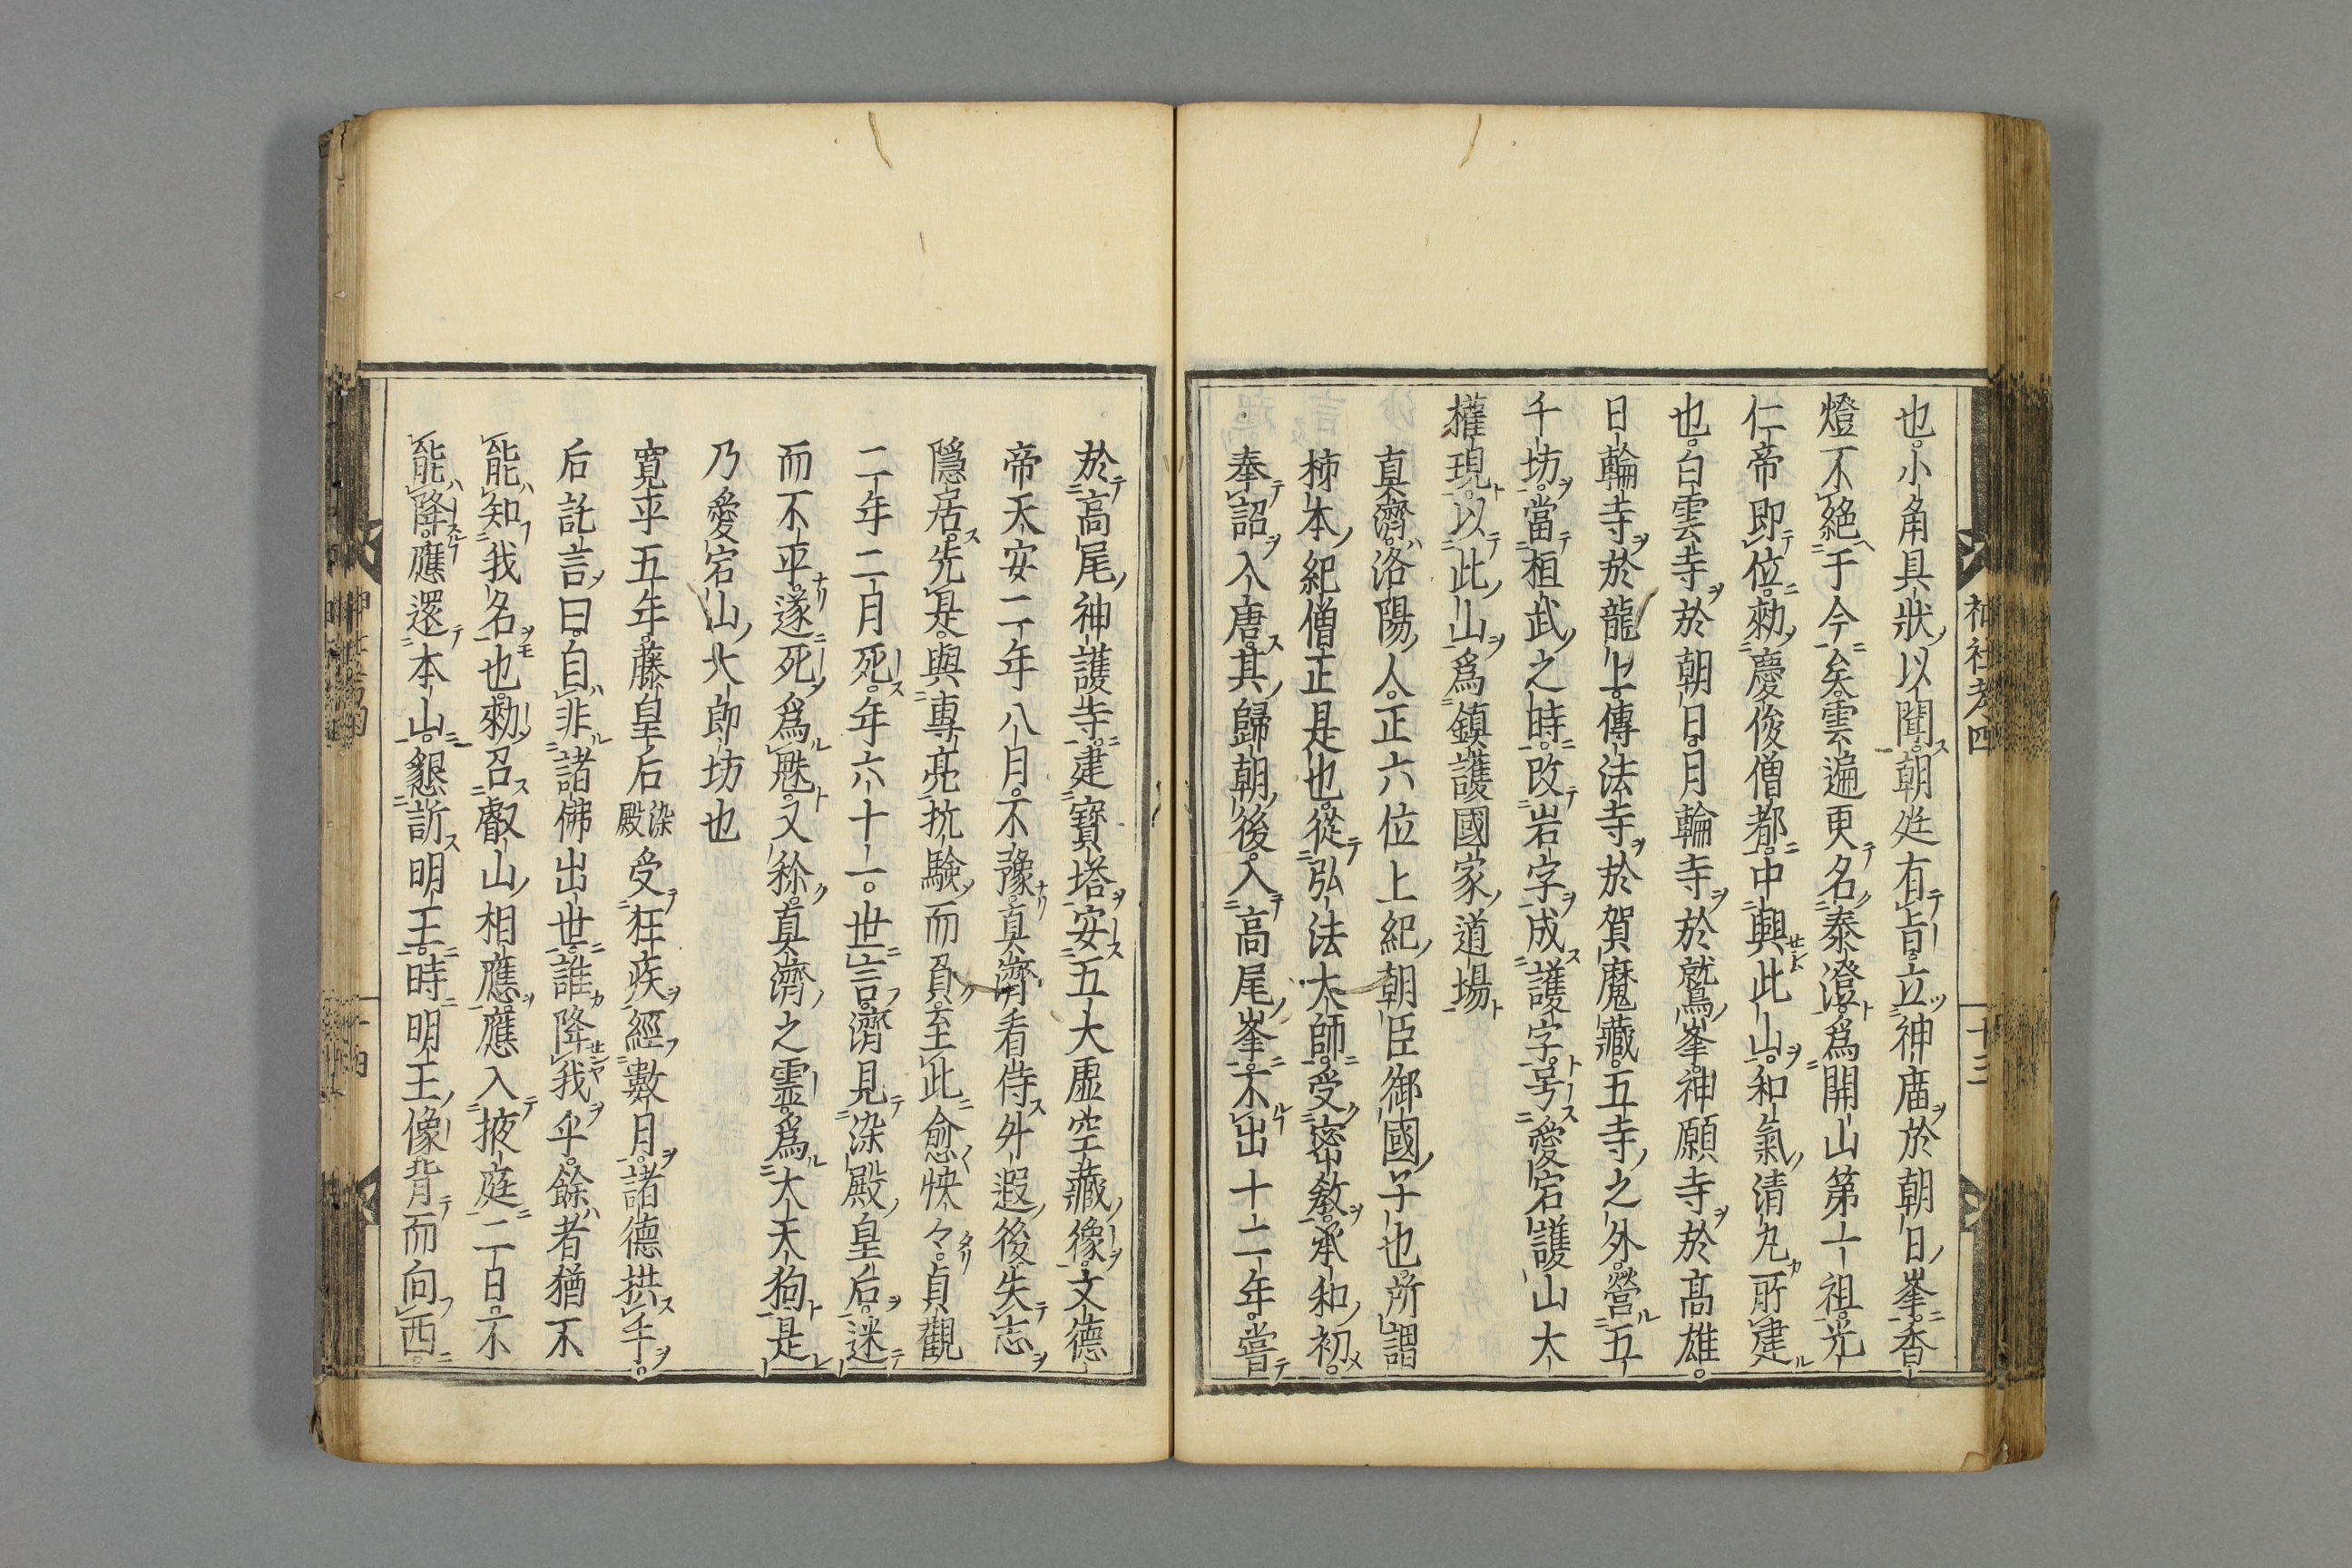 也小角具狀以聞朝廷有旨立神庿於朝日峯香
燈不絶于今矣雲遍更名泰澄爲開山第一祖光
仁帝即位勑慶俊僧都中興此山和氣清丸所建
也白雲寺於朝日月輪寺於鷲峯神願寺於高雄
日輪寺於龍上傳法寺於賀魔藏五寺之外營五
千坊當桓武之時改岩字成護字号愛宕護山大
權現以此山爲鎮護國家道場
真濟洛陽人正六位上紀朝臣御國子也所謂
柿本紀僧正是也從弘法大師受密教承和初
奉詔入唐其歸朝後入高尾峯不出十二年嘗
神社考四
十三
於高尾神護寺建寶塔安五大虛空藏像文德
帝天安二年八月不豫真濟看侍外遐後失志
隱居先是與專亮抗驗而負至此愈怏々貞觀
二年二月死年六十一世言濟見染殿皇后迷
而不平遂死爲魅又称真濟之霊爲大天狗是
乃愛宕山大郎坊也
寛平五年藤皇后染殿受狂疾經數月諸德拱手
后託言曰自非諸佛出世誰降我乎餘者猶不
能知我名也勑召叡山相應應入掖庭二日不
能降應還本山懇訴明王時明王像背而向西